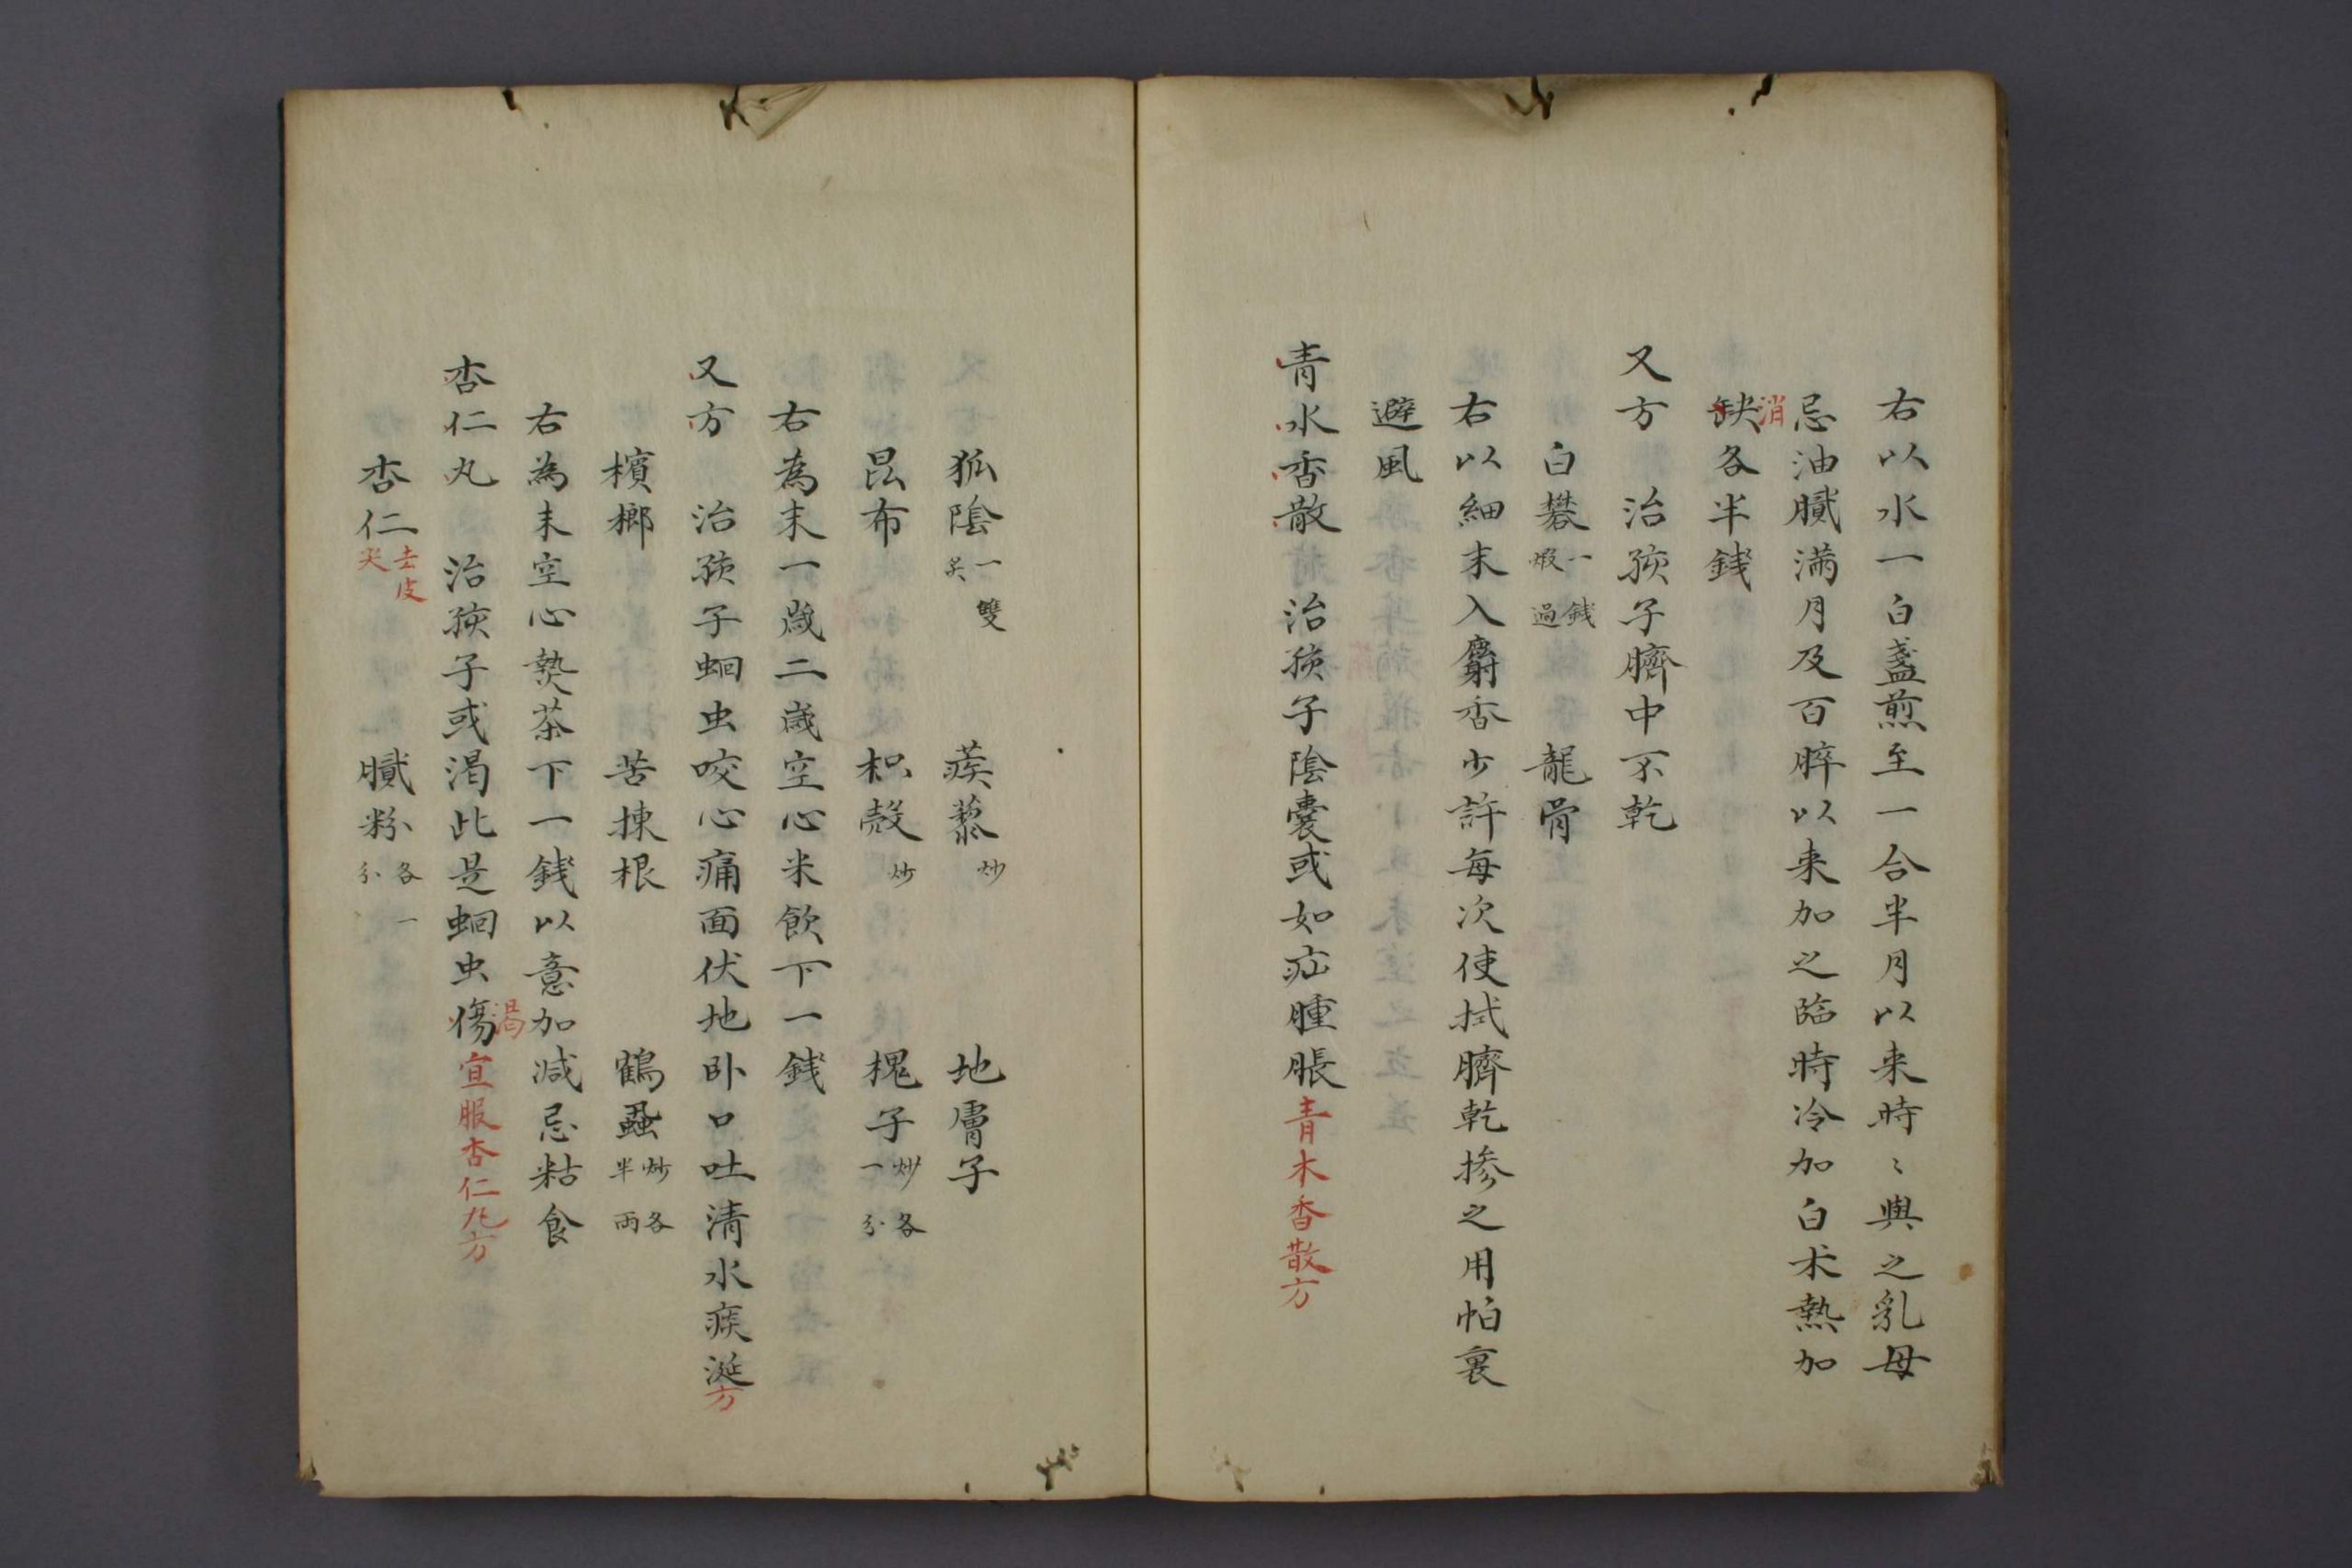 右以水一白盞煎至一合半月以来時〻與之乳母
忌油膩満月及百晬以来加之臨時冷加白朮熱加
消
缺各半銭
又方　治孩子臍中不乾
白礬一銭煆過　龍骨
右以細末入麝香少許每次使拭臍乾摻之用帕裏
避風
青水香散　治孩子陰囊或如疝腫脹青木香散方
狐陰一雙炙　蒺藜炒　地膚子
昆布　枳殼炒　槐子炒各一分
右為末一歲二歲空心米飲下一銭
又方　治孩子蛔虫咬心痛面伏地卧口吐清水痰涎方
檳榔　苦揀根　鶴蝨炒各半両
右為末空心𤍠茶下一銭以意加減忌粘食
渴
杏仁丸　治孩子或渴此是蛔虫傷宜服杏仁丸方
杏仁去皮尖　膩粉各一分